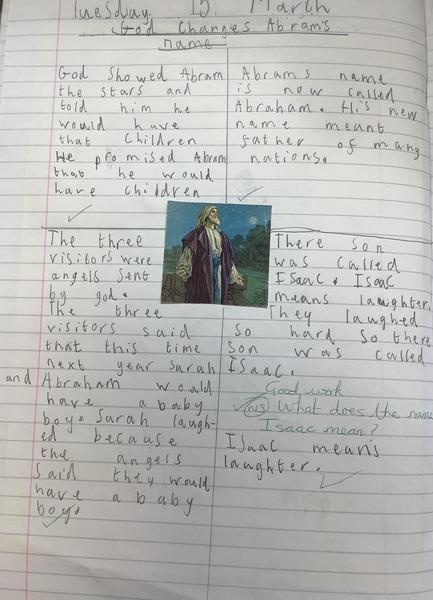 Tuesday 15 March
God Changes Abram's
name
God Showed Abram
the stars and
told him he
would have
that children
He promised Abram
that he would
have children
Abrams name
is now called
Abraham. His new
name meant
father of many
nations.
The three
visitors were
angels sent
by god.
The three
visitors said
that this time
next year sarah
and Abraham would
have a baby
boy. Sarah laugh-
ed because
the angels
said they would
have a baby
boy.
There son
was called
Isaac. Isaac
means laughter.
They laughed
so hard so there
son was called
Isaac.
Good work
(NS) What does the name
Isaac mean?
Isaac means
laughter.